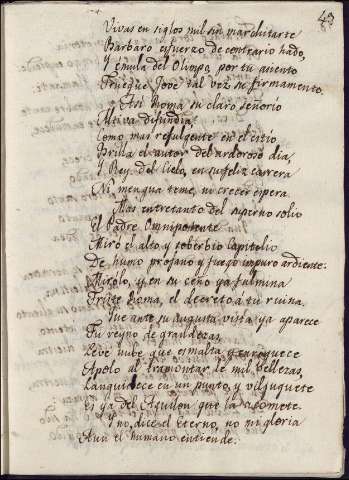 43
Vivas en siglos mil sin marchitarte
Barbaro esfuerzo de contrario hado,
Y émula del Olimpo, por tu asiento
Trueque Jove tal vez su firmamento.
Asi Roma su claro señorio
Altiva difundia,
Como mas refulgente en el estio
Brilla el autor del ardoroso dia,
Y Rey del Cielo, en su feliz carrera
Ni mengua teme, ni crecer espera.
Mas entretanto del superno solio
El Padre Omnipotente
Miró el alto y soberbio Capitolio
De humo profano y fuego impuro ardiente:
Mirólo, y en su ceño ya fulmina
Triste Roma, el decreto á tu ruina.
Que ante su augusta vista ya aparece
Tu reyno de grandezas,
Leve nube que esmalta y enroquece
Apolo al tramontar de mil bellezas,
Languidece en un punto, y vil juguete
Es ya del Aquilon que la acomete.
Y no, dice el Eterno, no mi gloria
Aun el humano entiende: